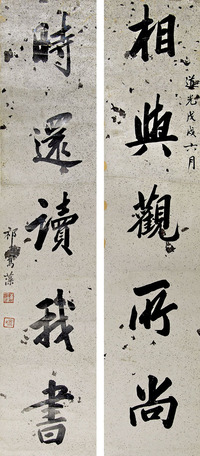 道光戊戌六月
相與觀所尚
時還讀我書
祁寯藻